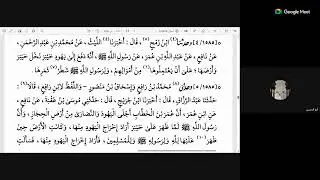 Google Meet
٤/١٥٨٥) وحدثنا ابْنُ رُمْحٍ، قَالَ: أَخْبَرَنَا اللَّيْثُ، عَنْ مُحَمَّدِ بْنِ عَبْدِ الرَّحْمَنِ،
عَنْ نَافِعٍ، عَنْ عَبْدِ اللَّهِ بْنِ عُمَرَ، عَنْ رَسُولِ اللَّهِ ﷺ، أَنَّهُ دَفَعَ إِلَى يَهُودِ خَيْبَرَ نَخْلَ خَيْبَرَ
وَأَرْضَهَا؛ عَلَى أَنْ يَعْتَمِلُوهَا مِنْ أَمْوَالِهِمْ، وَلِرَسُولِ اللَّهِ ﷺ شَطْرُ ثَمَرِهَا.
٥/١٥٨٥) وحدثني مُحَمَّدُ بْنُ رَافِعٍ وَإِسْحَاقُ بْنُ مَنْصُورٍ - وَاللَّفْظُ لِابْنِ رَافِعٍ - قَالَا:
حَدَّثَنَا عَبْدُ الرَّزَّاقِ، قَالَ: أَخْبَرَنَا ابْنُ جُرَيْجٍ، قَالَ: حَدَّثَنِي مُوسَى بْنُ عُقْبَةَ، عَنْ نَافِعٍ،
عَنِ ابْنِ عُمَرَ، أَنَّ عُمَرَ بْنَ الْخَطَّابِ أَجْلَى الْيَهُودَ وَالنَّصَارَى مِنْ أَرْضِ الْحِجَازِ، وَأَنَّ
رَسُولَ اللَّهِ ﷺ لَمَّا ظَهَرَ عَلَى خَيْبَرَ أَرَادَ إِخْرَاجَ الْيَهُودِ مِنْهَا، وَكَانَتِ الْأَرْضُ حِينَ
ظَهَرَ عَلَيْهَا لِلَّهِ وَلِرَسُولِهِ وَلِلْمُسْلِمِينَ، فَأَرَادَ إِخْرَاجَ الْيَهُودِ مِنْهَا، فَسَأَلَتِ